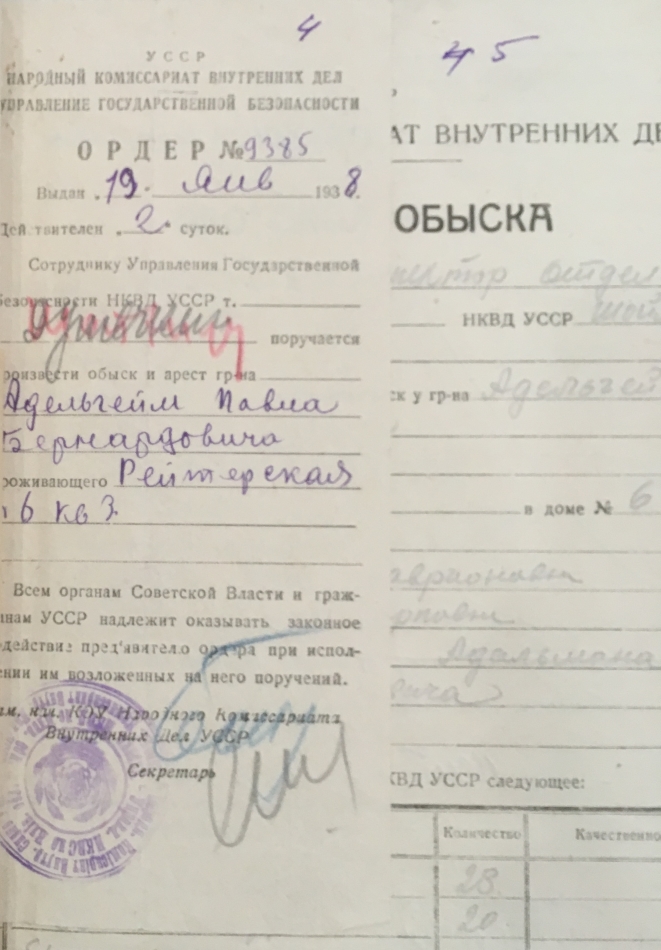 4
УССР
НАРОДНЫЙ КОМИССАРИАТ ВНУТРЕННИХ ДЕЛ
УПРАВЛЕНИЕ ГОСУДАРСТВЕННОЙ БЕЗОПАСНОСТИ
ОРДЕР №9385
Выдан „19. Янв 1938.
Действителен „2. суток.
Сотруднику Управления Государственной
безопасности НКВД УССР т.
поручается
произвести обыск и арест гр-на
Адельгейм Павла
Бернардовича
роживающего Рейтерская
6 кв 3.
Всем органам Советской Власти и граж-
нам УССР надлежит оказывать законное
действие пред'явителю ордера при испол-
нии им возложенных на него поручений.
Народного Комиссариата
Внутренних Дел УССР
Секретарь
45
АТ ВНУТРЕННИХ ДЕ
ОБЫСКА
НКВД УССР
ск у гр-на Адельгей
в доме № 6
КВД УССР следующее:
Количество
Качественно
23
20